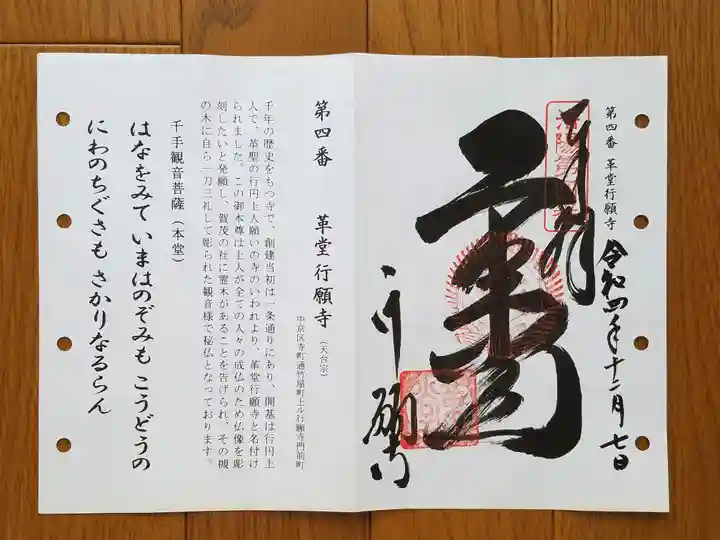 第四番 革堂行願寺
令和四年十二月七日
奉拝
行願寺
第四番 革堂行願寺 (天台宗)
中京区寺町通竹屋町上ル行願寺門前町
千年の歴史をもつ寺で、創建当初は一条通りにあり、開基は行円上
人で、革聖の行円上人願いの寺のいわれより、革堂行願寺と名付け
られました。この御本尊は上人が全ての人々の成仏のため仏像を彫
刻したいと発願し、賀茂の社に霊木があることを告げられ、その槻
の木に自ら一刀三礼して彫られた観音様で秘仏となっております。
千手観音菩薩(本堂)
はなをみて いまはのぞみも こうどうの
にわのちぐさも さかりなるらん